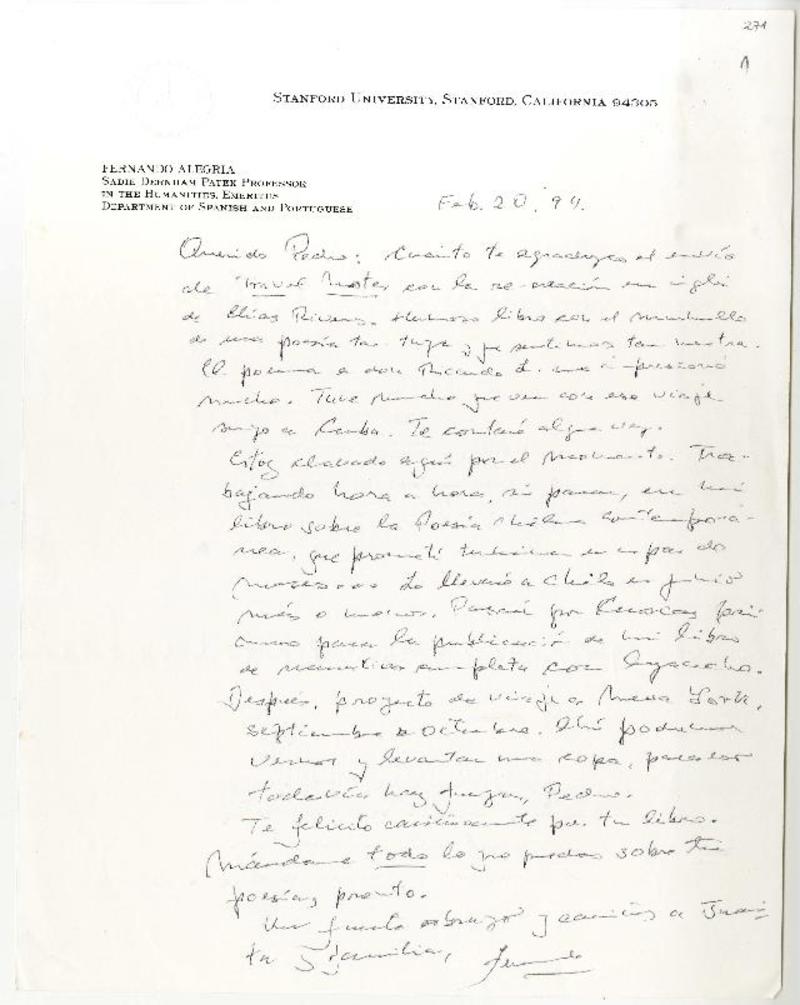 271
1
STANFORD UNIVERSITY, STANFORD, CALIFORNIA 94305
FERNANDO ALEGRIA
SADIE DERNHAM PATEK PROFESSOR
IN THE HUMANITIES, EMERITUS
DEPARTMENT OF SPANISH AND PORTUGUESE
Feb. 20, 94.
Querido Pedro: Cuánto te agradezco el envío
de Travel Notes con la re-creación en inglés
de Elías Rivers. Hermoso libro con el murmullo
de una poesía tan tuya y que sentimos tan nuestra.
El poema a don Ricardo L. me impresionó
mucho. Tuve mucho que ver con ese viaje
suyo a Cuba. Te contaré alguna vez.
Estoy clavado aquí por el momento. Tra-
bajando hora a hora, sin parar, en mi
libro sobre la Poesía chilena contemporá-
nea, que prometí terminar en un par de
meses... Lo llevaré a Chile en junio
más o menos. Pasaré por Caracas
para la publicación de mi libro
de narrativa completa con Ayacucho.
Después, proyecto de viaje a Nueva York,
septiembre a octubre. Ahí podremos
vernos y levantar una copa, para eso
todavía hay fuerzas, Pedro.
Te felicito cariñosamente por tu libro.
Mándame todo lo que puedas sobre tu
poesía, pronto.
Un fuerte abrazo y cariños a Juani-
ta y familia,
Fernando